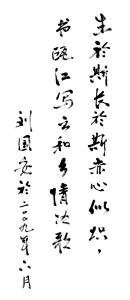 生於斯长於斯赤心似炽，
书瓯江写云和乡情次歌
刘国安於二〇〇九年六月